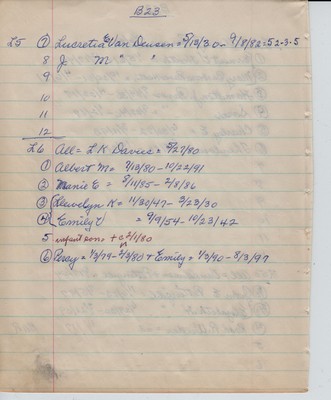 B23
L5 ⑦ Lucretia Van Deusen = 8/13/30 - 9/8/82 = 52-3-5
8 J M " "
9
10
11
12
L6 All = L K Davies = 5/27/80
① Albert M = 7/13/80 - 10/22/91
② Mamie E = 9/11/85 - 2/8/86
③ Llewelyn K = 11/30/47 - 3/23/30
④ Emily = 9/9/54 - 10/23/42
5 infant son = + 2/1/80
⑥ Percy = 1/3/79 - 2/3/80 + Emily = 1/3/90 - 8/3/97